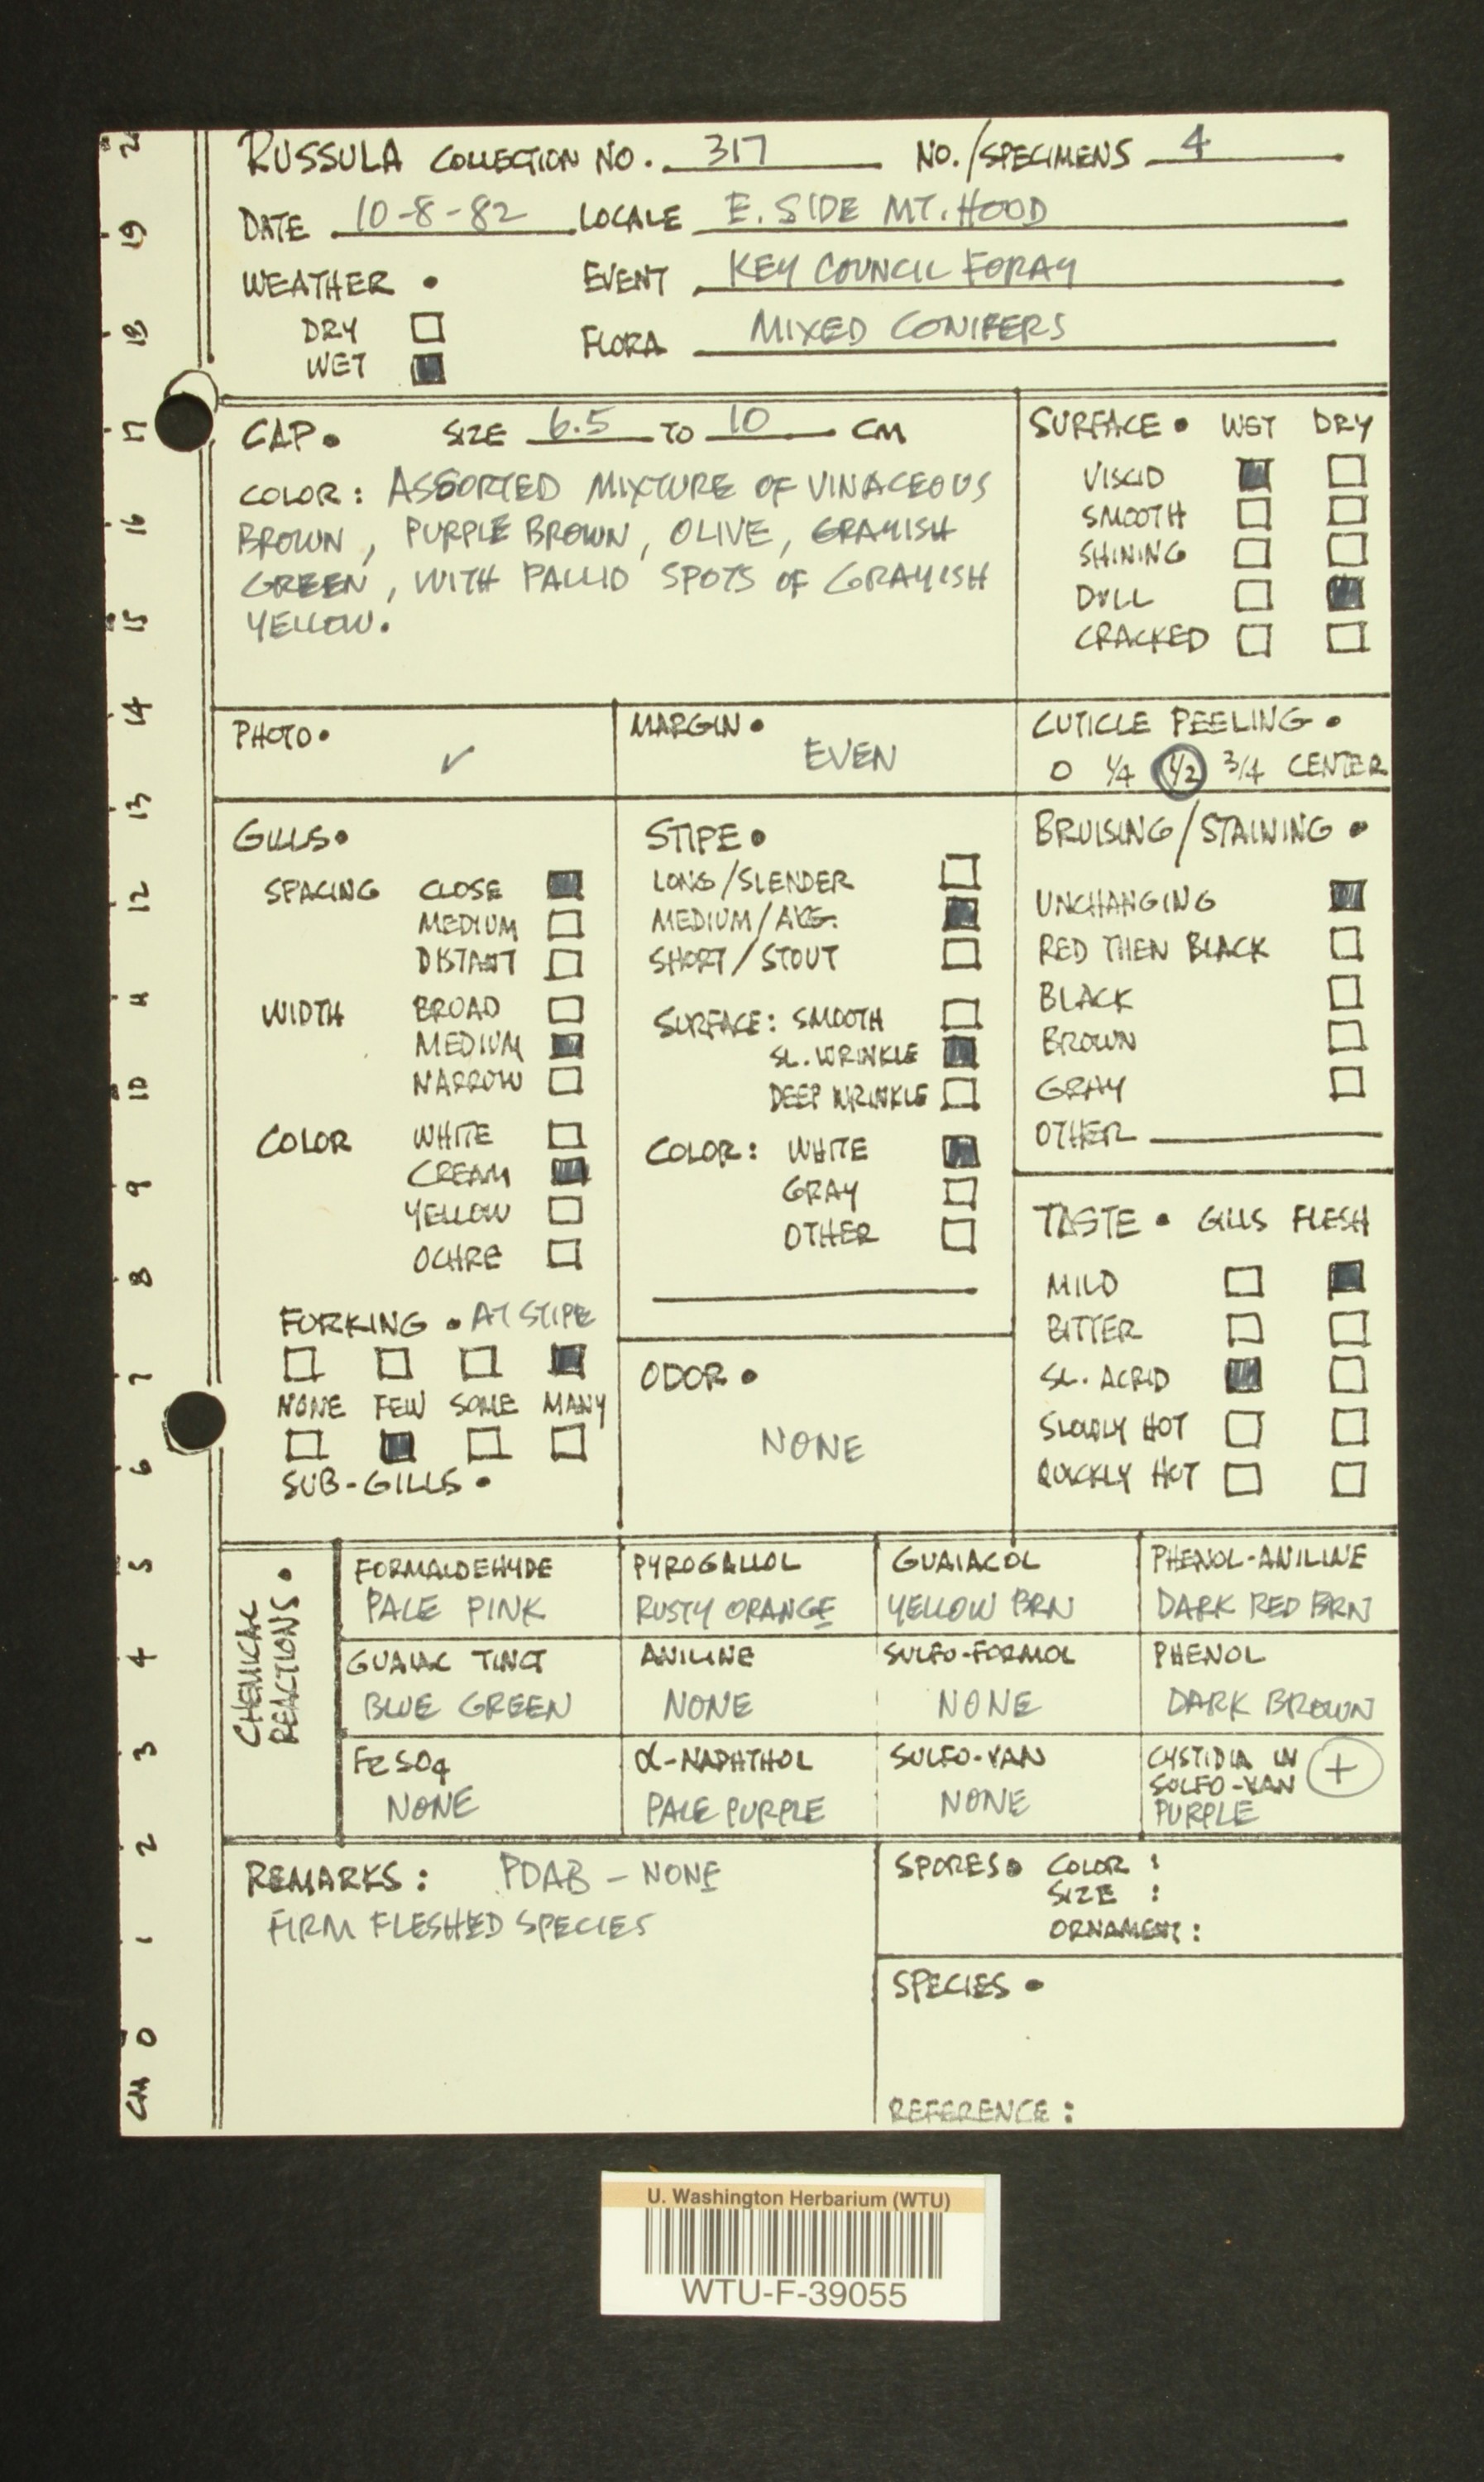 RUSSULA COLLECTION NO. 317 NO./SPECIMENS 4
DATE 10-8-82 LOCALE E. SIDE MT. HOOD
WEATHER • EVENT KEY COUNCIL FORAY
DRY
FLORA MIXED CONIFERS
WET
CAP • SIZE 6.5 TO 10 CM
COLOR: ASSORTED MIXTURE OF VINACEOUS
BROWN, PURPLE BROWN, OLIVE, GRAYISH
GREEN, WITH PALLID SPOTS OF GRAYISH
YELLOW.
SURFACE • WET DRY
VISCID
SMOOTH
SHINING
DULL
CRACKED
PHOTO • ✓
MARGIN •
EVEN
CUTICLE PEELING •
0 1/4 1/2 3/4 CENTER
GILLS •
SPACING CLOSE
MEDIUM
DISTANT
WIDTH BROAD
MEDIUM
NARROW
COLOR WHITE
CREAM
YELLOW
OCHRE
FORKING • AT STIPE
NONE FEW SOME MANY
SUB-GILLS •
STIPE •
LONG/SLENDER
MEDIUM/AVG.
SHORT/STOUT
SURFACE: SMOOTH
SL. WRINKLE
DEEP WRINKLE
COLOR: WHITE
GRAY
OTHER
ODOR •
NONE
BRUISING/STAINING •
UNCHANGING
RED THEN BLACK
BLACK
BROWN
GRAY
OTHER
TASTE • GILLS FLESH
MILD
BITTER
SL. ACRID
SLOWLY HOT
QUICKLY HOT
CHEMICAL
REACTIONS •
FORMALDEHYDE PYROGALLOL GUAIACOL PHENOL-ANILINE
PALE PINK RUSTY ORANGE YELLOW BRN DARK RED BRN
GUAIAC TINCT ANILINE SULFO-FORMOL PHENOL
BLUE GREEN NONE NONE DARK BROWN
FeSO4 α-NAPHTHOL SULFO-VAN CYSTIDIA IN
SULFO-VAN +
NONE PALE PURPLE NONE PURPLE
REMARKS: PDAB - NONE
FIRM FLESHED SPECIES
SPORES • COLOR :
SIZE :
ORNAMENT :
SPECIES •
REFERENCE :
CM 0 1 2 3 4 5 6 7 8 9 10 11 12 13 14 15 16 17 18 19 20
U. Washington Herbarium (WTU)
WTU-F-39055